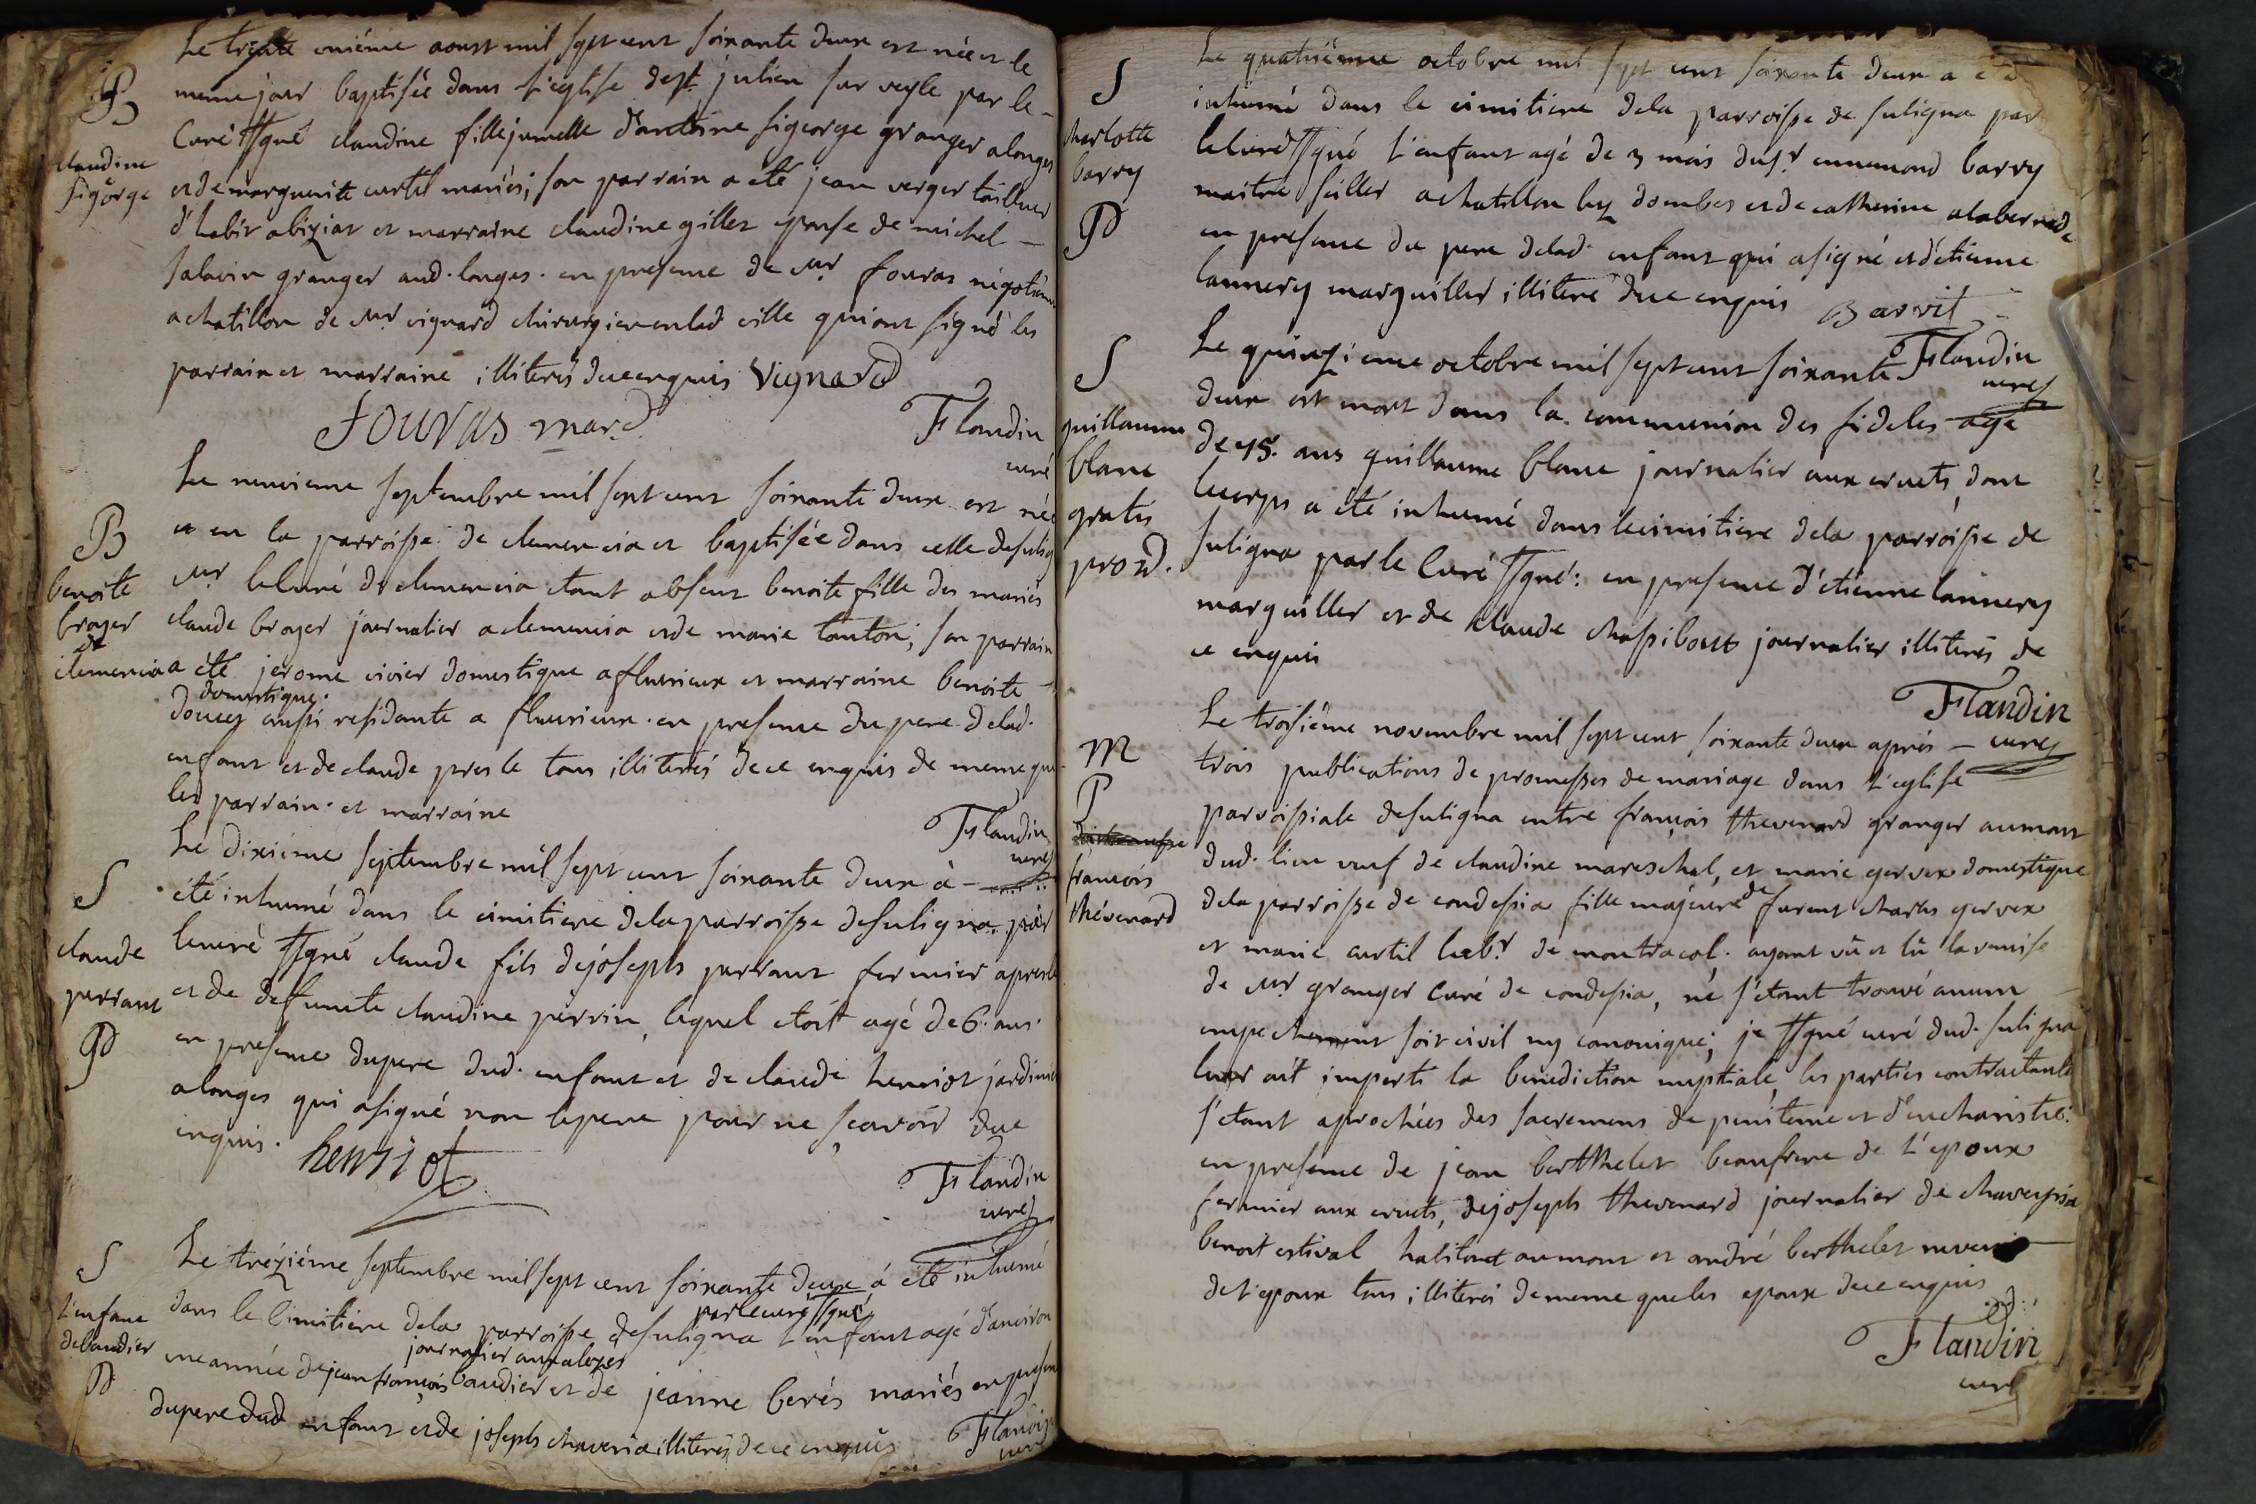 B
claudine
sigorge
Le trente uniéme aoust mil sept cent soixante deux est née et le
meme jour baptisée dans l'eglise de st. julien sur veyle par le
Curé ssgné claudine fille jumelle d'antoine sigeorge granger a longes
et de marguerite curtil mariés; son parrain a été jean verger tailleur
d'habit a biziat et marraine claudine gillet epouse de michel
salavin granger aud. longes. en presence de mr. fouras négotiant
a chatillon de mr. vignard chirurgien en lad ville qui ont signé les
parrain et marraine illiterés de ce enquis Vignard
fouras mard.
Flandin
curé
B
benoite
broyer
de
clemencia
Le neuvieme septembre mil sept cent soixante deux est née
et en la parroisse de clemencia et baptisée dans celle de sulig
mr. le curé de clemencia etant absent benoite fille des mariés
claude broyer journalier a clemencia et de marie tonton; son parrain
a été jerome vivier domestique a fleurieux et marraine benoite
domestique
doucey aussi residante a fleurieux. en presence du pere de lad.
enfant et de claude presle tous illiterés de ce enquis de meme que
les parrain et marraine
Flandin
curé
S
claude
perrant
P
Le dixiéme septembre mil sept cent soixante deux à
été inhumé dans le cimitiere de la parroisse de suligna par
le curé ssgné claude fils de joseph perrant fermier a presle
et de defuncte claudine perrin, lequel etoit agé de 6. ans.
en presence du pere dud. enfant et de claude henriot jardinier
a longes qui a signé non le pere pour ne sçavoir de ce
enquis. henriot
Flandin
curé
S
L'enfant
de baudier
P
Le tréziéme septembre mil sept cent soixante deux à été inhumé
par le curé ssgné
dans le cimitiere de la parroisse de suligna l'enfant agé d'anviron
journalier aux alozes
une année de jean françois baudier et de jeanne berés mariés en presence
du pere dud enfant et de joseph chaveria illiterés de ce enquis
Flandin
curé
S
charlotte
barry
P
Le quatriéme octobre mil sept cent soixante deux a été
inhumé dans le cimitiere de la parroisse de suligna par
le curé ssgné L'enfant agé de 3 mois du sr. ennemond barry
maitre sellier a chatillon les dombes et de catherine alabernade
en presence du pere de lad. enfant qui a signé et d'étienne
lannery marguiller illiteré de ce enquis Barrit
Flandin
curé
S
guillaume
blanc
gratis
pro D.
Le quinzieme octobre mil sept cent soixante
deux est mort dans la communion des fideles agé
de 45. ans guillaume blanc journalier aux cruets, dont
le corps a été inhumé dans le cimitiere de la parroisse de
suligna par le Curé ssgné: en presence d'étienne lannery
marguiller et de claude chassibout journalier illiterés de
ce enquis
Flandin
curé
M
P
françois
thévenard
Le troisiéme novembre mil sept cent soixante deux aprés
trois publications de promesses de mariage dans L'eglise
parroissiale de suligna entre françois thevenard granger au mont
dud. lieu veuf de claudine mareschal, et marie gervex domestique
de la parroisse de condessia fille majeure de furent charles gervex
et marie curtil labr. de montracol. ayant vû et lû la remise
de mr. granger Curé de condessia, ne s'etant trouvé aucun
empechement soit civil ny canonique; je ssgné curé dud. suligna
leur ait imparti la benediction nuptiale, les parties contractante
s'etant aprochées des sacremens de penitence et d'eucharistie.
en presence de jean berthelet beaufrere de L'epoux
fermier aux cruets, de joseph thevenard journalier de chaveyria
benoit estival habitant au mont et andré berthelet neveu
de l'epoux tous illiterés de meme que les epoux de ce enquis
Flandin
curé